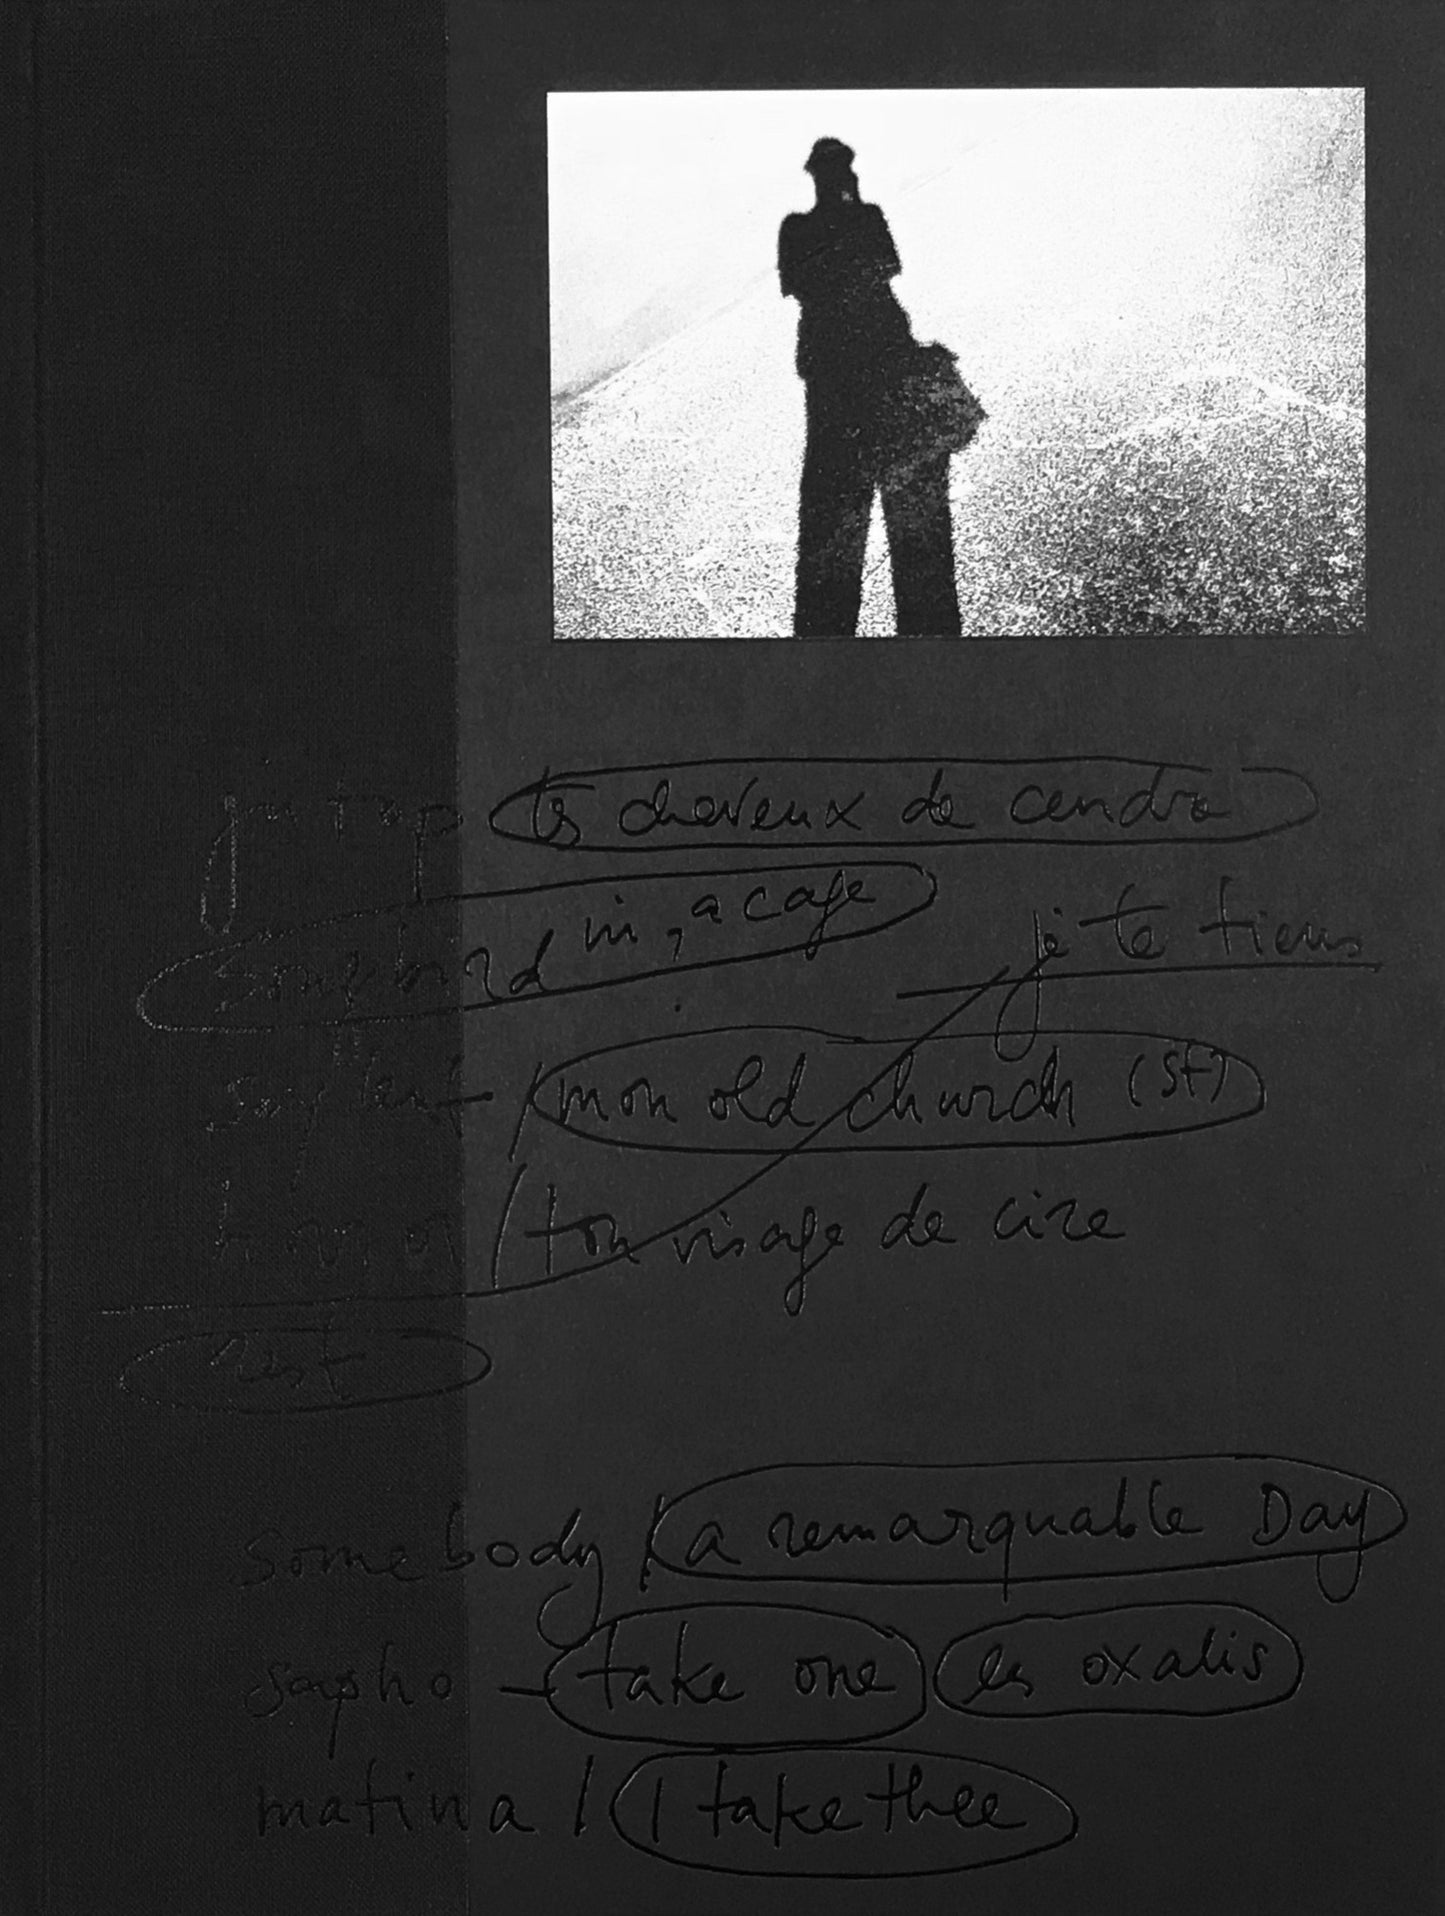 tes cheveux de cendre
Some bird in, a cage
je te tiens
mon old church (St)
ton visage de cire
rest
somebody / a remarquable Day
sapho – take one les oxalis
matina / I take thee